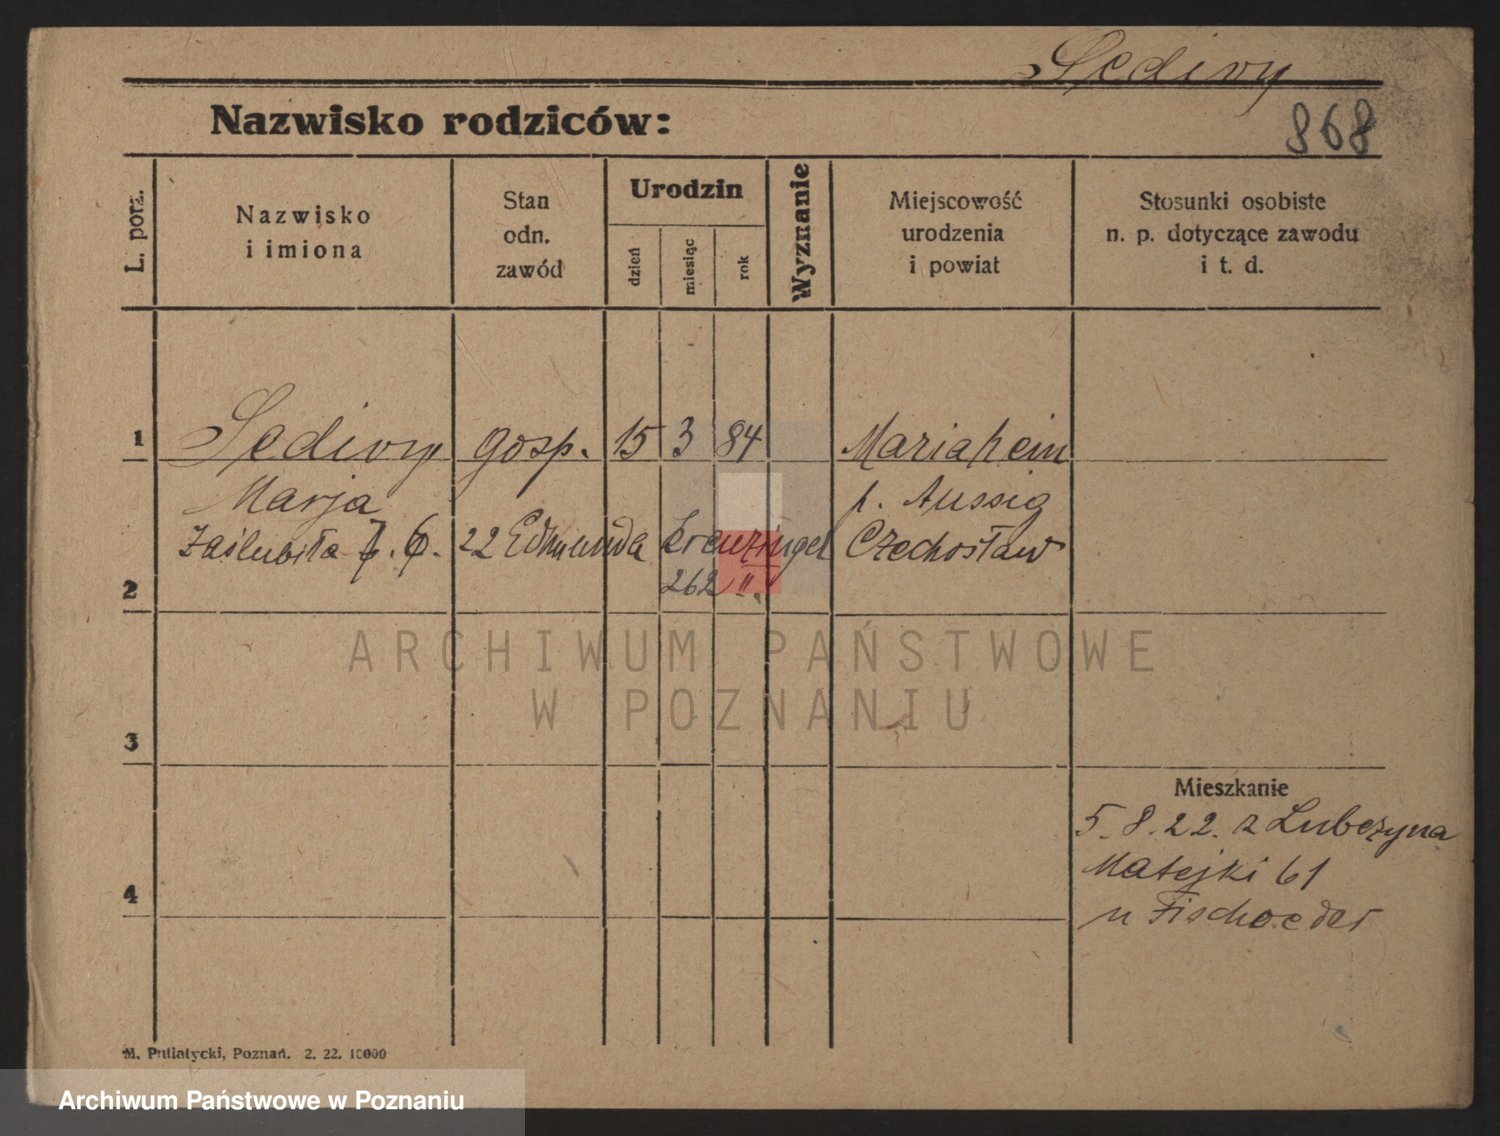 Sedivy
Nazwisko rodziców:
868
L. porz.
Nazwisko
i imiona
Stan
odn.
zawód
Urodzin
dzień
miesiąc
rok
Wyznanie
Miejscowość
urodzenia
i powiat
Stosunki osobiste
n. p. dotyczące zawodu
i t. d.
1 Sedivy gosp. 15 3 84 Mariahein
Marja p. Aussig
zaślubiła 7. 6. 22 Edmunda Kreuzinger Czechosław
262
2
ARCHIWUM PAŃSTWOWE
W POZNANIU
3
Mieszkanie
5. 8. 22. z Lubczyna
Matejki 61
4
u Fischoeder
M. Putiatycki, Poznań. 2. 22. 10000
Archiwum Państwowe w Poznaniu